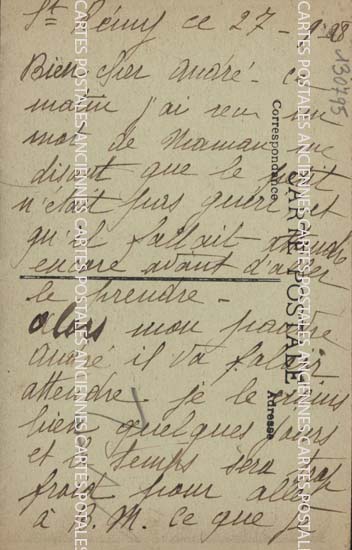 St Rémy ce 27-9-18
Bien cher André - ce
matin j'ai reçu un
mot de Maman me
disant que le petit
n'était pas guéri et
qu'il fallait attendre
encore avant d'aller
le prendre -
alors mon pauvre
André il va falloir
attendre - je le crains
bien quelques jours
et le temps sera trop
froid pour aller
à B. M. ce que je
130795
Correspondance
CARTE POSTALE
Adresse
CARTES POSTALES ANCIENNES CARTES POSTALES ANCIENNES CARTES POSTALES ANCIENNES